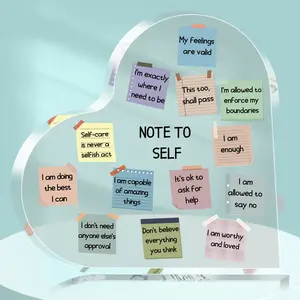 My Feelings
are valid
I'm exactly
where I
need to be
This too,
shall pass
I'm allowed to
enforce my
boundaries
Self-care
is never a
selfish act
NOTE TO
SELF
I am
enough
I am doing
the best
I can
I am capable
of amazing
things
It's ok to
ask for
help
I am
allowed to
say no
I don't need
anyone else's
approval
Don't believe
everything
you think
I am worthy
and loved